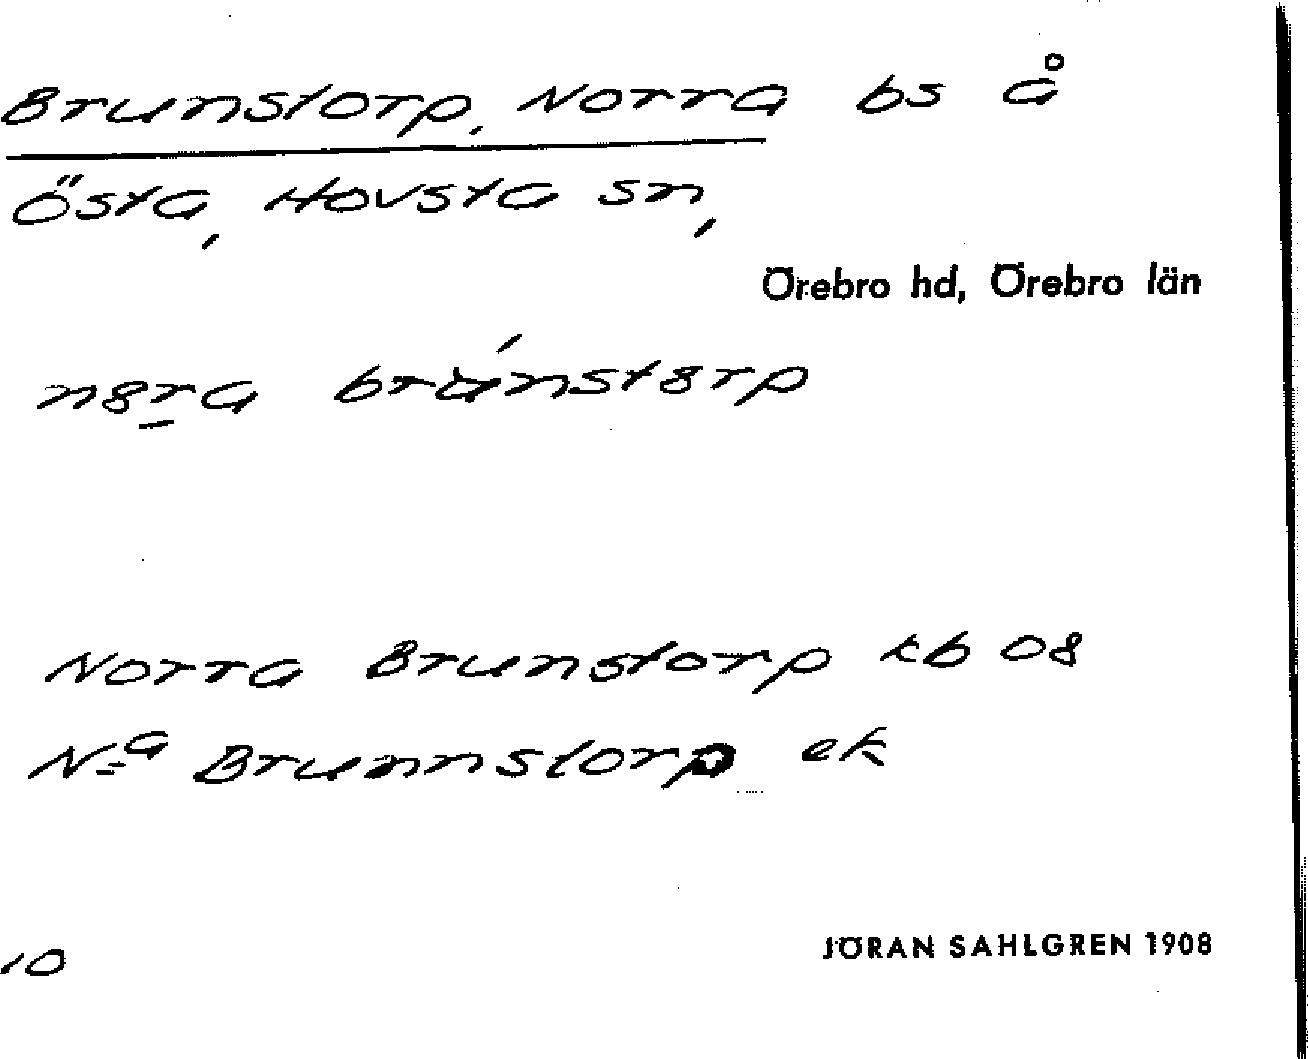 Brunstorp, Norra bs å
Östa, Hovsta sn,
Örebro hd, Örebro län
n8ra brunst8rp
Norra Brunstorp kb 08
Nª Brunnstorp ek
10
JÖRAN SAHLGREN 1908